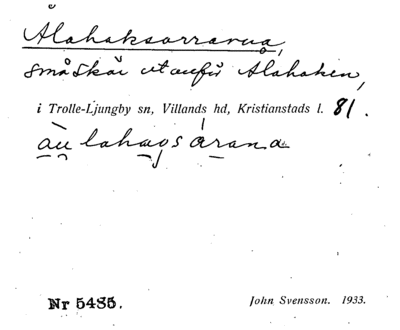 Ålahaksorrarna,
små skär utanför Ålahaken,
i Trolle-Ljungby sn, Villands hd, Kristianstads l. 81.
Nr 5485.
John Svensson. 1933.